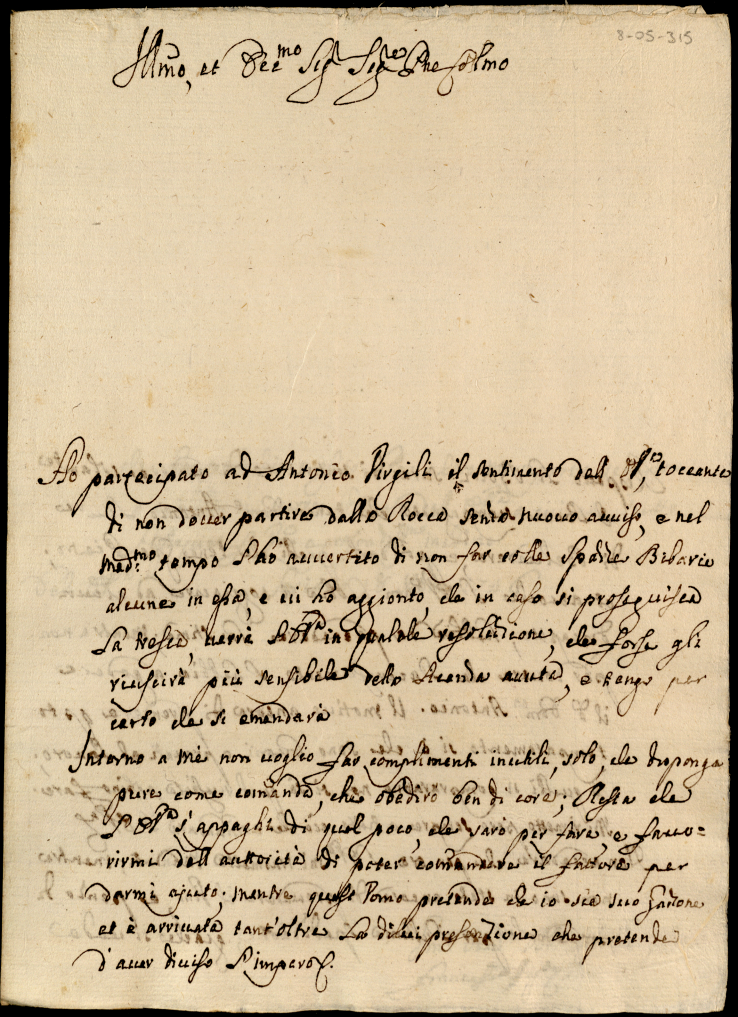 8-05-315
Illmo, et Ecc.mo Sig.r Sig.re Pne Colmo
Ho partecipato ad Antonio Virgili il sentimento dell' toccante
di non dover partire dalla Rocca senza nuovo auuiso, e nel
med.mo tempo l'hò auuertito di non far colle
alcune in essa, e ui hò aggionto, che in caso si proseguisca
La tresca, uerrà in qualche resoluzione, che forse gli
riuscirà più sensibile dello auuta, e tengo per
certo che si emandarà
Intorno a me non uoglio far complimenti inutili, solo, che disponga
pure come comanda, che obedirò ben di core; Resta che
s'appaghi di quel poco, che varò per fare, e fauo=
rirmi dell' auttorità di poter comandare il fattore per
darmi ajuto; mentre quest'Vomo pretende che io sia suo Garzone
et è arriuata tant'oltre La di lui presonzione che pretende
d'auer diuiso l'impero &.